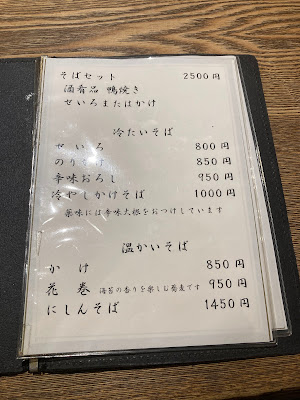 そばセット 2500円
酒肴品 鴨焼き
せいろまたはかけ
冷たいそば
せいろ 800円
のりかけ 850円
辛味おろし 950円
冷やしかけそば 1000円
薬味には辛味大根をおつけしています
温かいそば
かけ 850円
花巻 海苔の香りを楽しむ蕎麦です 950円
にしんそば 1450円